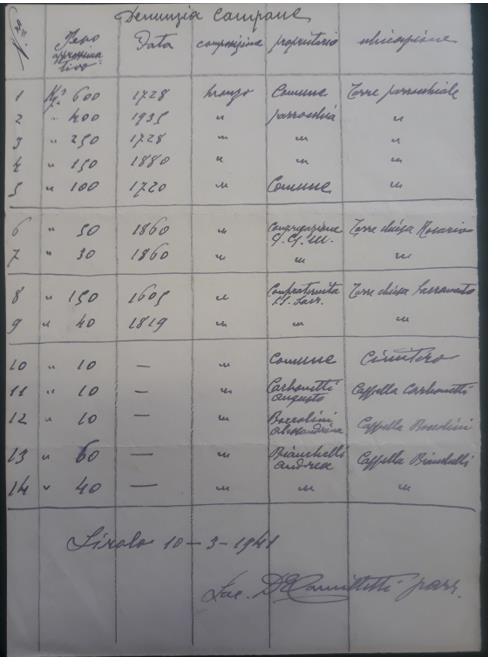 Denunzia Campane
N. Peso approssimativo Data composizione proprietario ubicazione
1 Kg. 600 1728 bronzo Comune Torre parrocchiale
2 " 400 1935 " parrocchia "
3 " 250 1728 " " "
4 " 150 1880 " " "
5 " 100 1720 " Comune "
6 " 50 1860 " Congregazione Torre chiesa Rosario
7 " 30 1860 " " "
8 " 150 1605 " Confraternita SS. Sacr. Torre chiesa Sacramento
9 " 40 1819 " " "
10 " 10 — " Comune Cimitero
11 " 10 — " Carbonetti Augusto Cappella Carbonetti
12 " 10 — " Boccolini Alessandrina Cappella Boccolini
13 " 60 — " Bianchelli Andrea Cappella Bianchelli
14 " 40 — " " "
Sirolo 10-3-1941
Sac. parr.